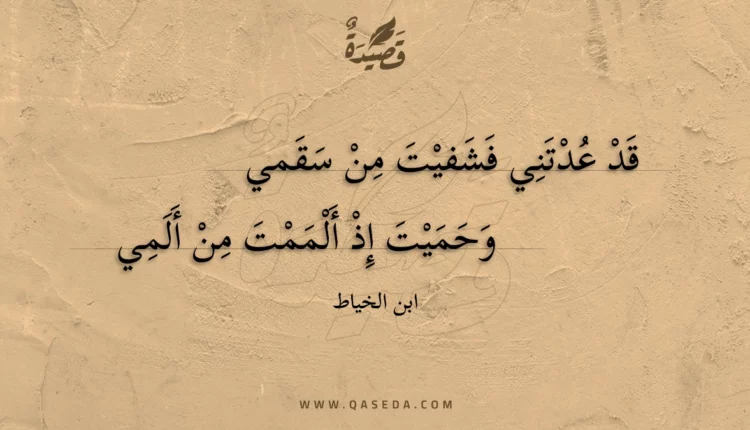 قَصِيدَةٌ
قَدْ عُدْتَنِي فَشَفيْتَ مِنْ سَقَمي
وَحَمَيْتَ إِذْ أَلْمَمْتَ مِنْ أَلَمِي
ابن الخياط
WWW.QASEDA.COM